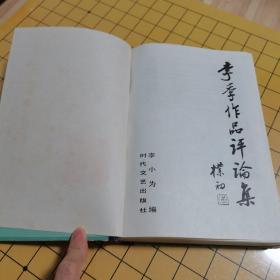 李季作品评论集
樸初
李小为编
时代文艺出版社